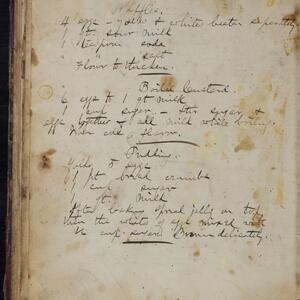 Waffles.
4 eggs - yolks & whites beaten separately
1 pt. sour milk
1 teaspoon soda
" salt
Flour to thicken.
Boiled Custard.
6 eggs to 1 qt milk
1 cup sugar - stir sugar &
eggs together & add milk while boiling.
When cold - flavor.
Pudding.
Yolks 5 eggs
1 pt bread crumbs
1 cup sugar
1 qt. milk
After baking spread jelly on top
then the whites of eggs mixed with
cup sugar. Brown delicately.